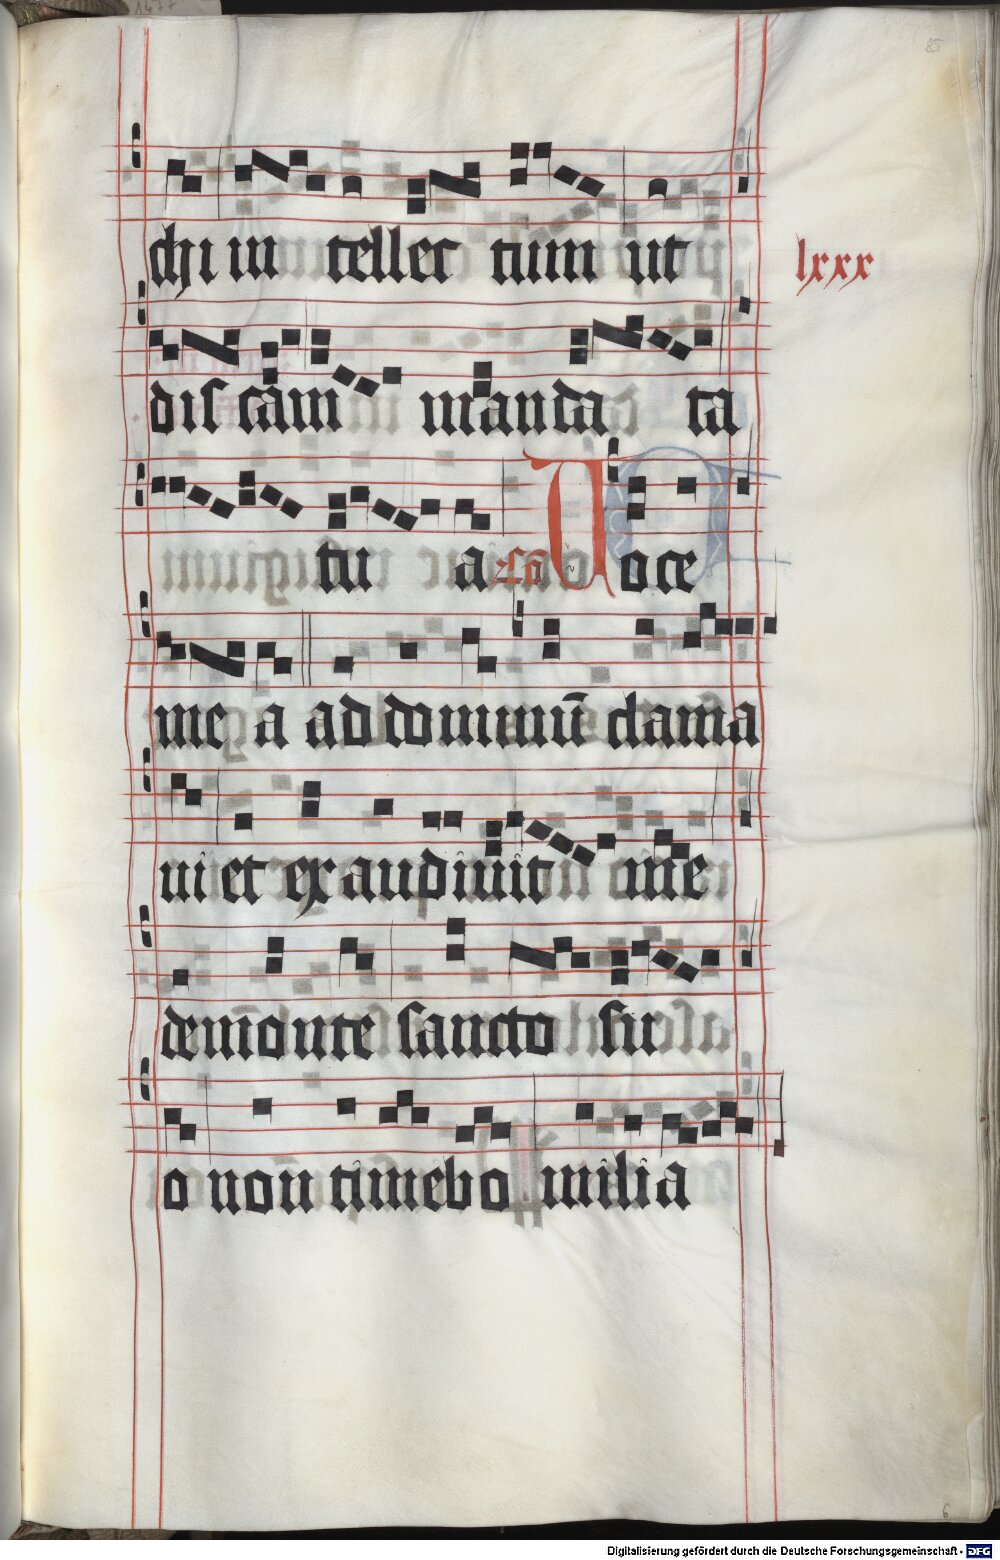 85
chi in tellec tum ut
lxxx
discam manda ta
tu a Voce
mea ad dominū clama
ui et exaudiuit me
de mōnte sancto su
o non timebo milia
6
Digitalisierung gefördert durch die Deutsche Forschungsgemeinschaft - DFG